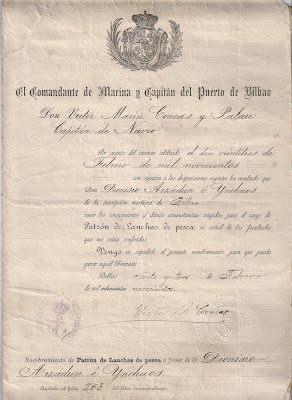 El Comandante de Marina y Capitán del Puerto de Bilbao
Don Victor Maria Concas y Palau
Capitán de Navío
Por cuanto del examen celebrado el dia veintitres de
Febrero de mil novecientos
con sujeción á las disposiciones vigentes ha resultado que
Don Dionisio Arzadun é Ynchaos
de la inscripción marítima de Bilbao
reune los conocimientos y demás circunstancias exigidas para el cargo de
Patrón de Lanchas de pesca; en virtud de las facultades
que me están conferidas
Vengo en expedirle el presente nombramiento para que pueda
ejercer aquél libremente.
Bilbao veinte y tres de Febrero
de mil ochocientos novecientos.
Victor M Concas
Nombramiento de Patrón de Lanchas de pesca á favor de D. Dionisio
Arzadun é Ynchaos.
Anotado al folio 203 del libro correspondiente.